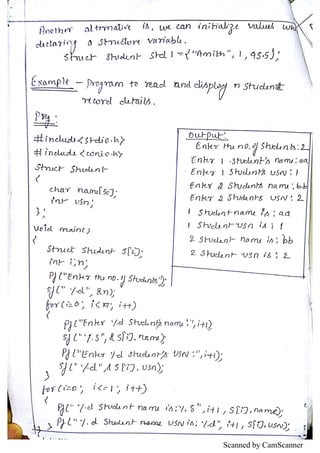 Another alternative is, we can initialize values whi
declaring a structure variable.
Struct Student Std1 = {"Amith", 1, 95.5};
Example - Program to read and display n student
record details.
Prg:
#include<stdio.h>
#include<conio.h>
Struct Student
{
char name[50];
int usn;
};
void main()
{
Struct Student S[i];
int i,n;
Pf("Enter the no. of Students");
Sf("%d", &n);
for(i=0; i<n; i++)
{
Pf("Enter %d Student's name:", i+1)
Sf("%s", &S[i].name);
Pf("Enter %d Student's USN:", i+1);
Sf("%d", &S[i].usn);
}
for(i=0; i<=1; i++)
{
Pf("%d Student name is: %s", i+1, S[i].name);
Pf("%d Student name USN is: %d", i+1, S[i].usn);
}
Output:
Enter the no. of Students: 2
Enter 1 Student's name: aa
Enter 1 Student's USN: 1
Enter 2 Students name: bb
Enter 2 Students USN: 2
1 Student name is: aa
1 Student usn is: 1
2 Student name is: bb
2 Student usn is: 2
Scanned by CamScanner